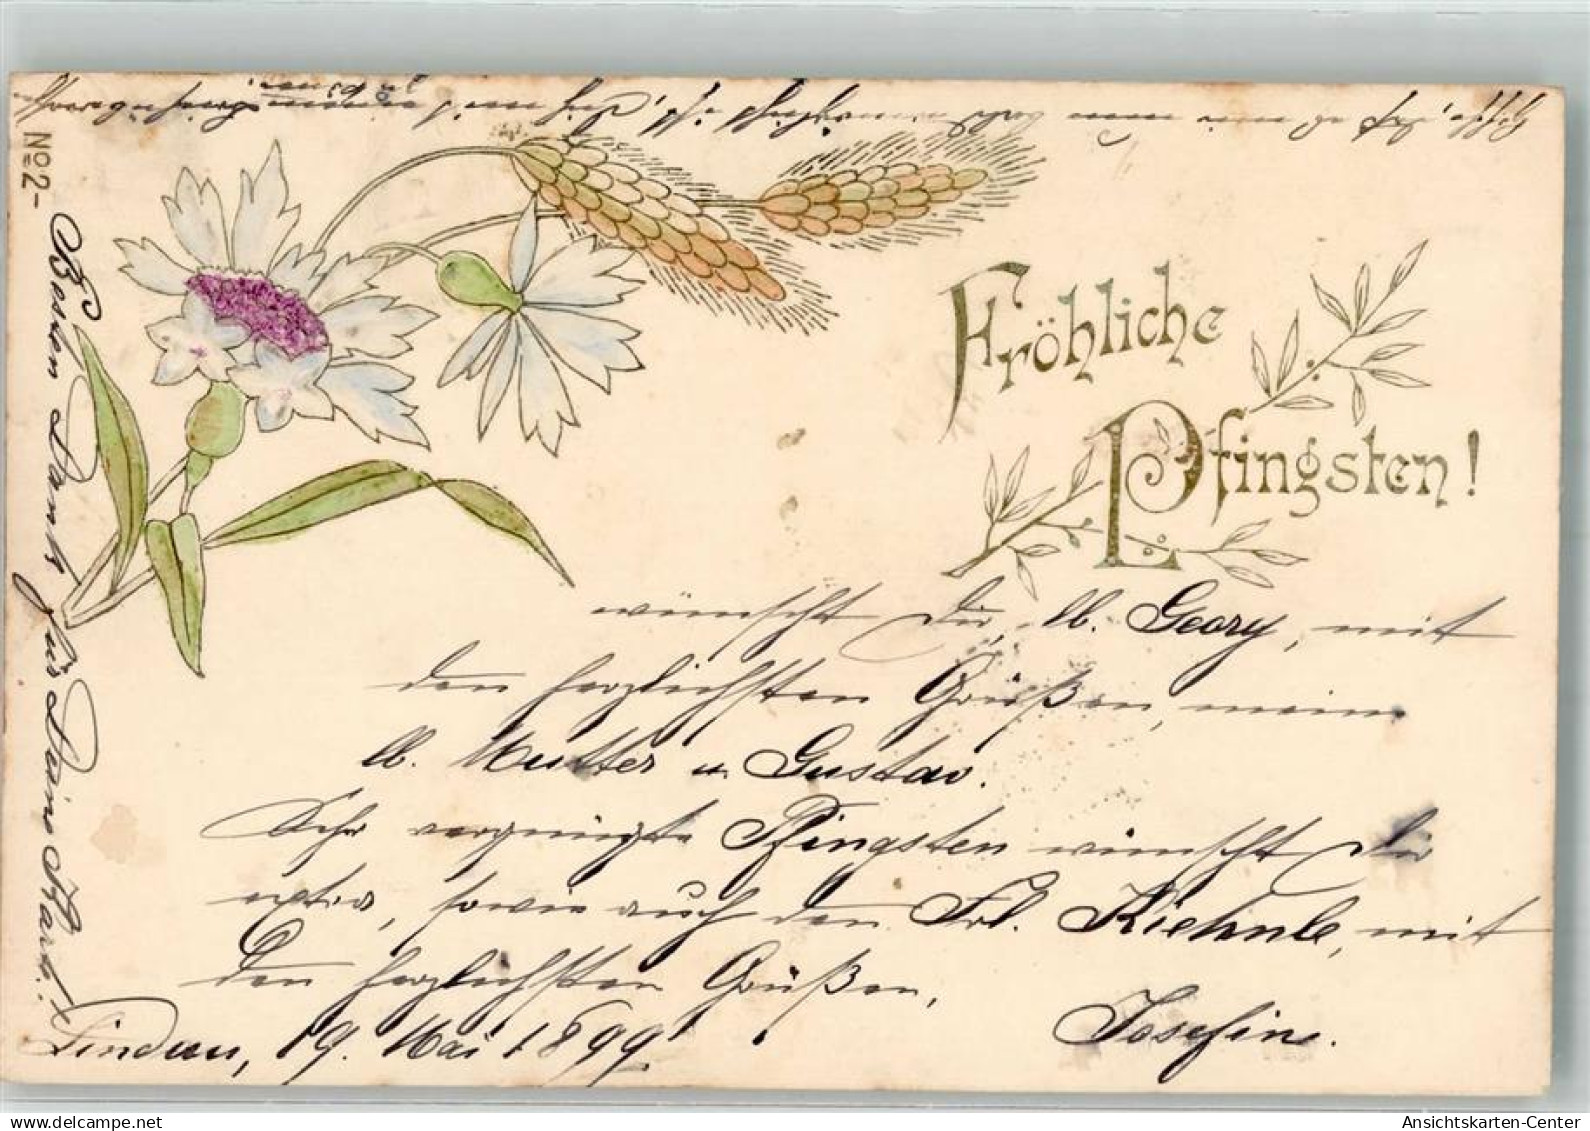 No. 2-
Fröhliche
Pfingsten!
wünscht Dir, lb. Georg, mit
den herzlichsten Grüßen, meine
lb. Mutter u. Gustav.
Sehr vergnügte Pfingsten wünscht Dir
extra, sowie auch den Frl. Kiehnle, mit
den herzlichsten Grüßen,
Josefine.
Lindau, 19. Mai 1899.
Besten Dank für Deine Karte!
AnsichtsKarten-Center